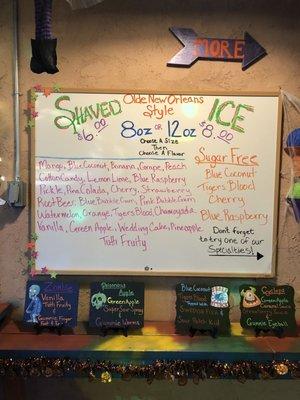 MORE
SHAVED
Olde New Orleans
Style
ICE
$6.00
8oz OR 12oz
$8.00
Choose A Size
Then
Choose A Flavor
Mango, Blue Coconut, Banana, Grape, Peach
Cotton Candy, Lemon Lime, Blue Raspberry
Pickle, Pina Colada, Cherry, Strawberry
Root Beer, Blue Bubble Gum, Pink Bubble Gum
Watermelon, Orange, Tigers Blood, Chamoyada
Vanilla, Green Apple, Wedding Cake, Pineapple
Tutti Fruity
Sugar Free
Blue Coconut
Tigers Blood
Cherry
Blue Raspberry
Don't forget
to try one of our
Specialties!
Zombie
Vanilla
Tutti Fruity
Gummie Finger
Poisonous
Apple
Green Apple
Super Sour Spray
Gummie Worms
Blue Coconut
Tigers Blood
Sour Patch Kid
Cyclops
Green Apple
Gummie Eyeball